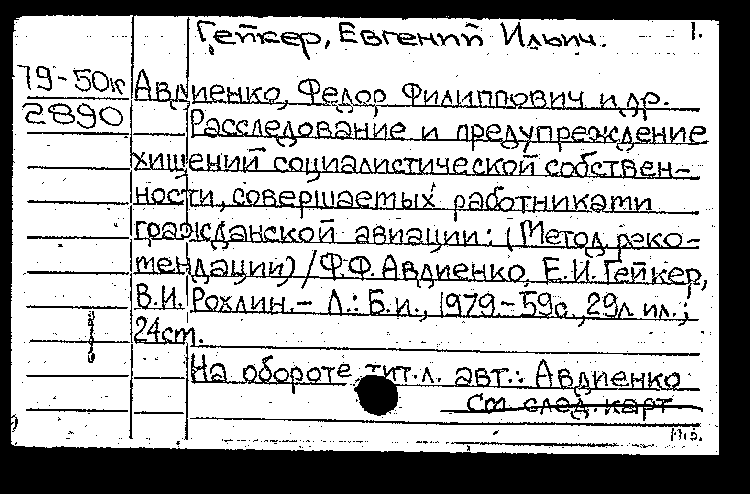 Гейкер, Евгений Ильич. 1.
79-50к Авдиенко, Федор Филиппович и др.
2890 Расследование и предупреждение
хищений социалистической собствен-
ности, совершаемых работниками
гражданской авиации: (Метод. реко-
мендации) / Ф.Ф. Авдиенко, Е.И. Гейкер,
В.И. Рохлин. – Л.: Б.и., 1979. – 59с., 29л ил.;
24см.
На обороте тит.л. авт.: Авдиенко
См след. карт